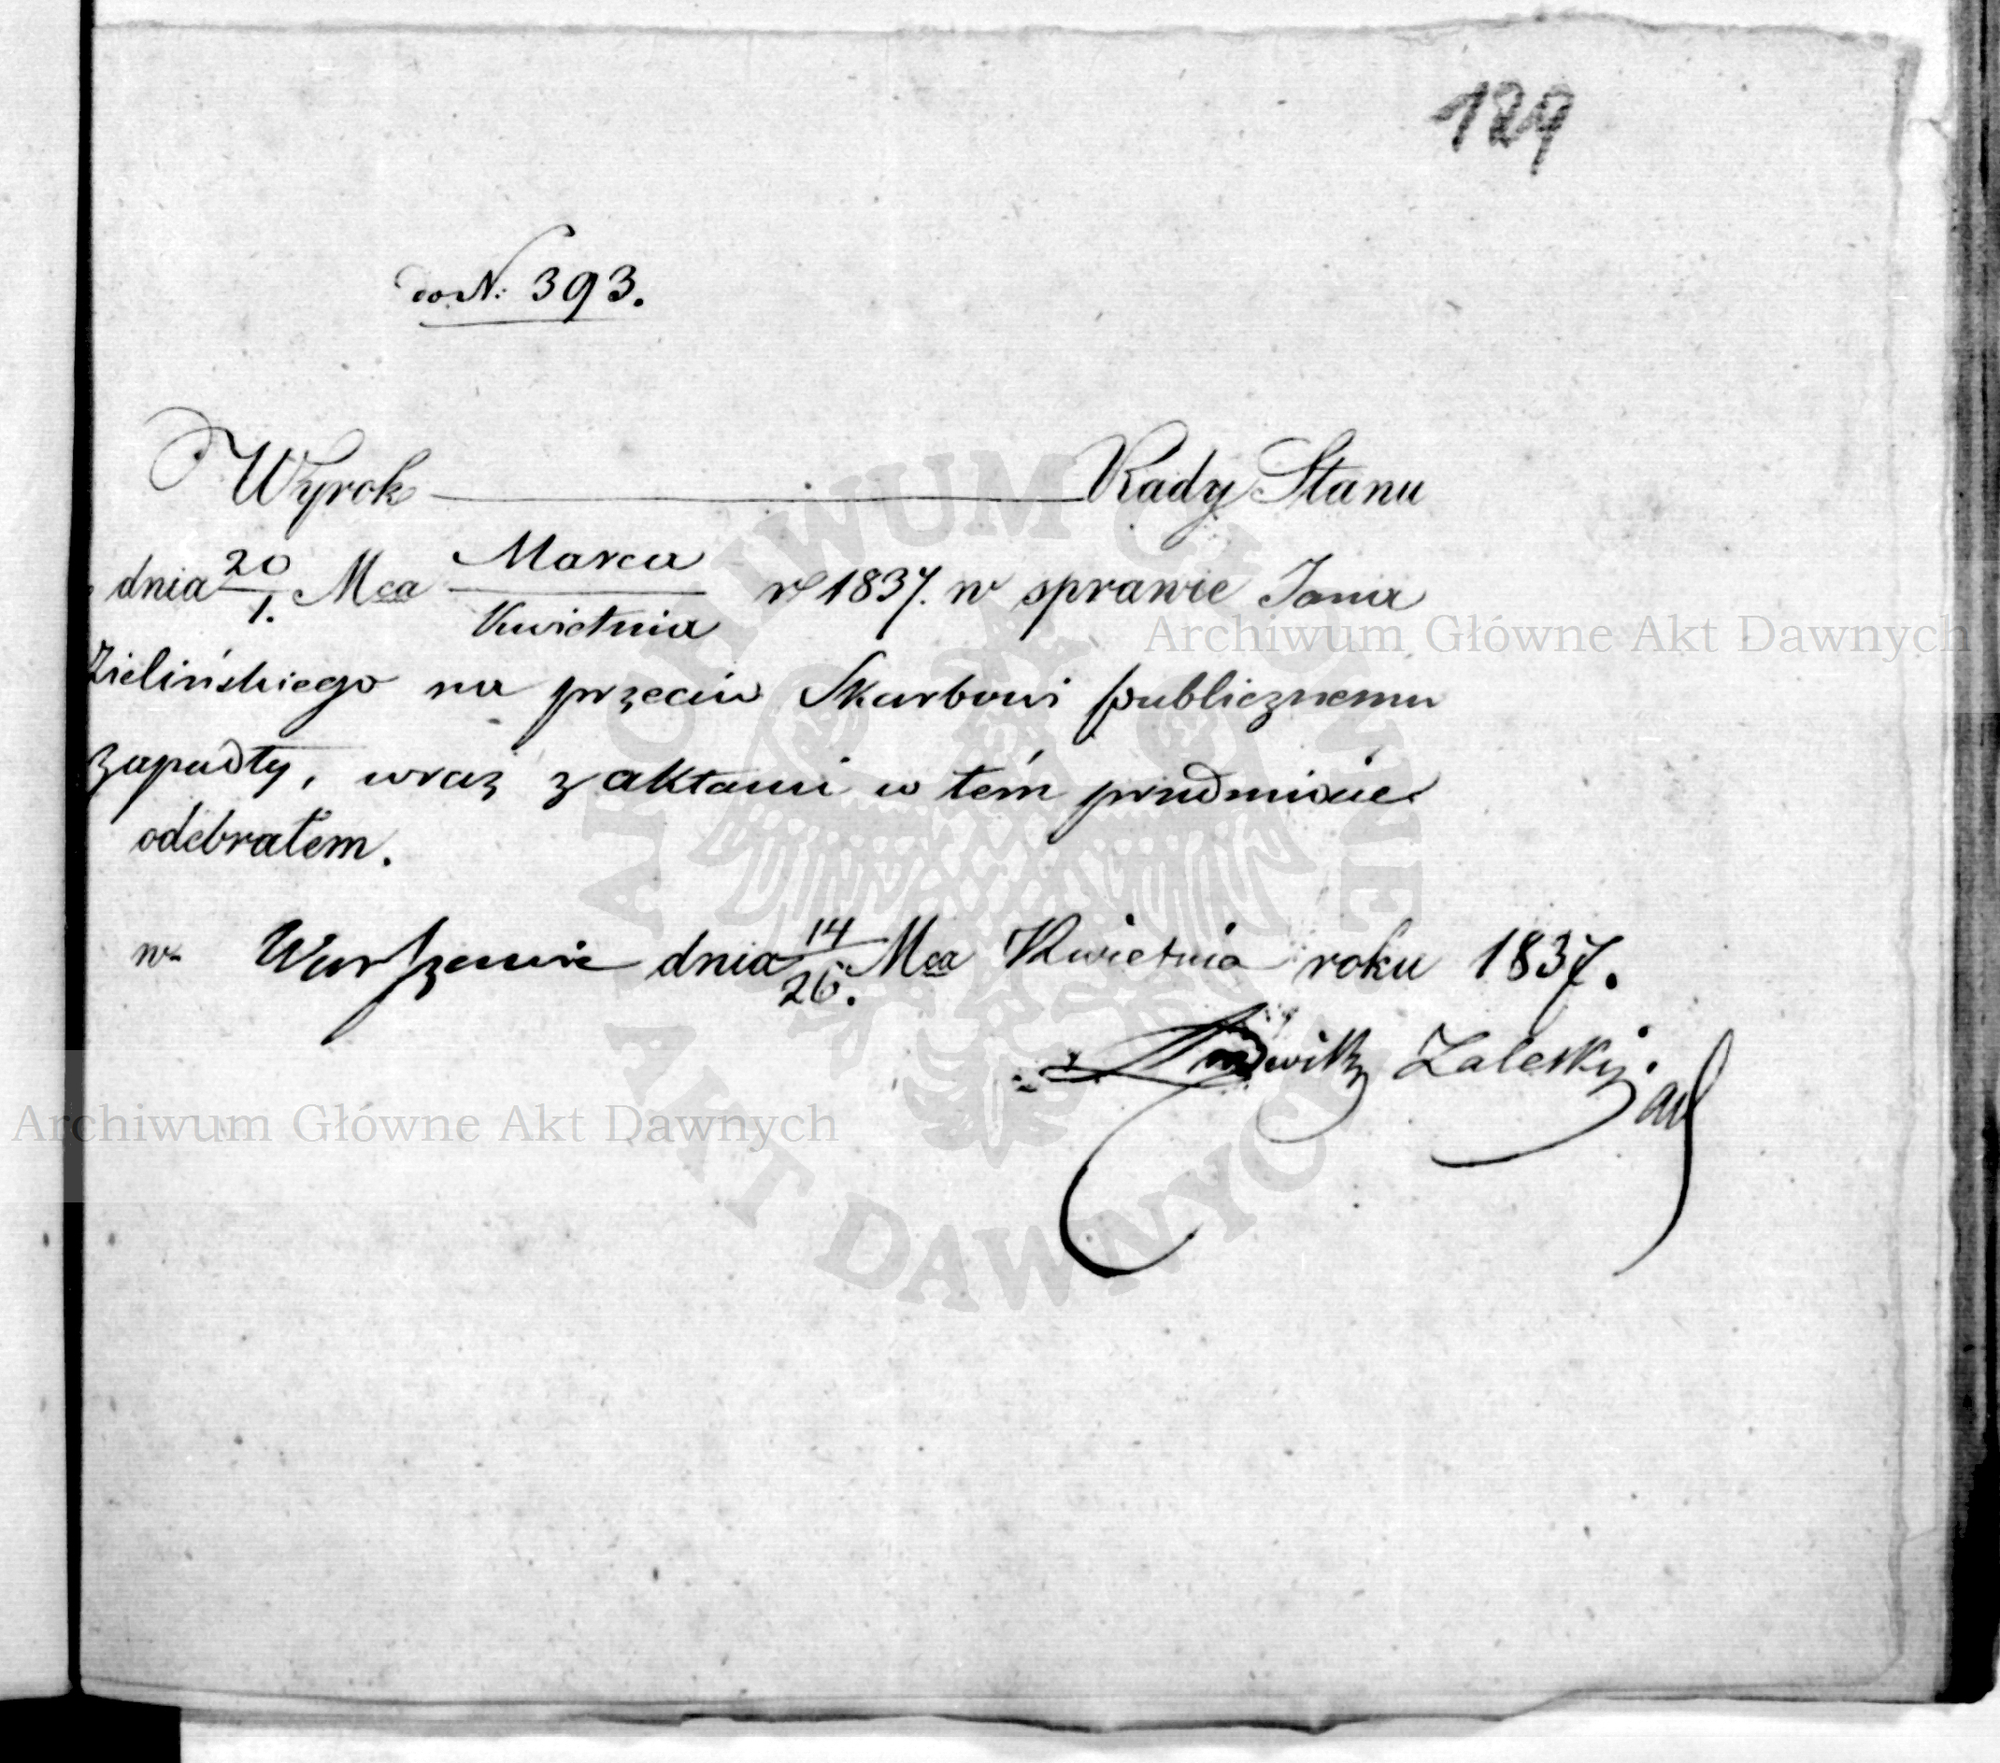 129
do N: 393.
Wyrok Rady Stanu
dnia 20/1. Mca Marca/Kwietnia r 1837. w sprawie Jana
Zielińskiego na przeciw Skarbowi publicznemu
zapadły, wraz z aktami w tém przedmiocie
odebrałem.
w Warszawie dnia 14/26. Mca Kwietnia roku 1837.
Ludwik Zaleski.
Archiwum Główne Akt Dawnych
Archiwum Główne Akt Dawnych
ARCHIWUM GŁÓWNE AKT DAWNYCH